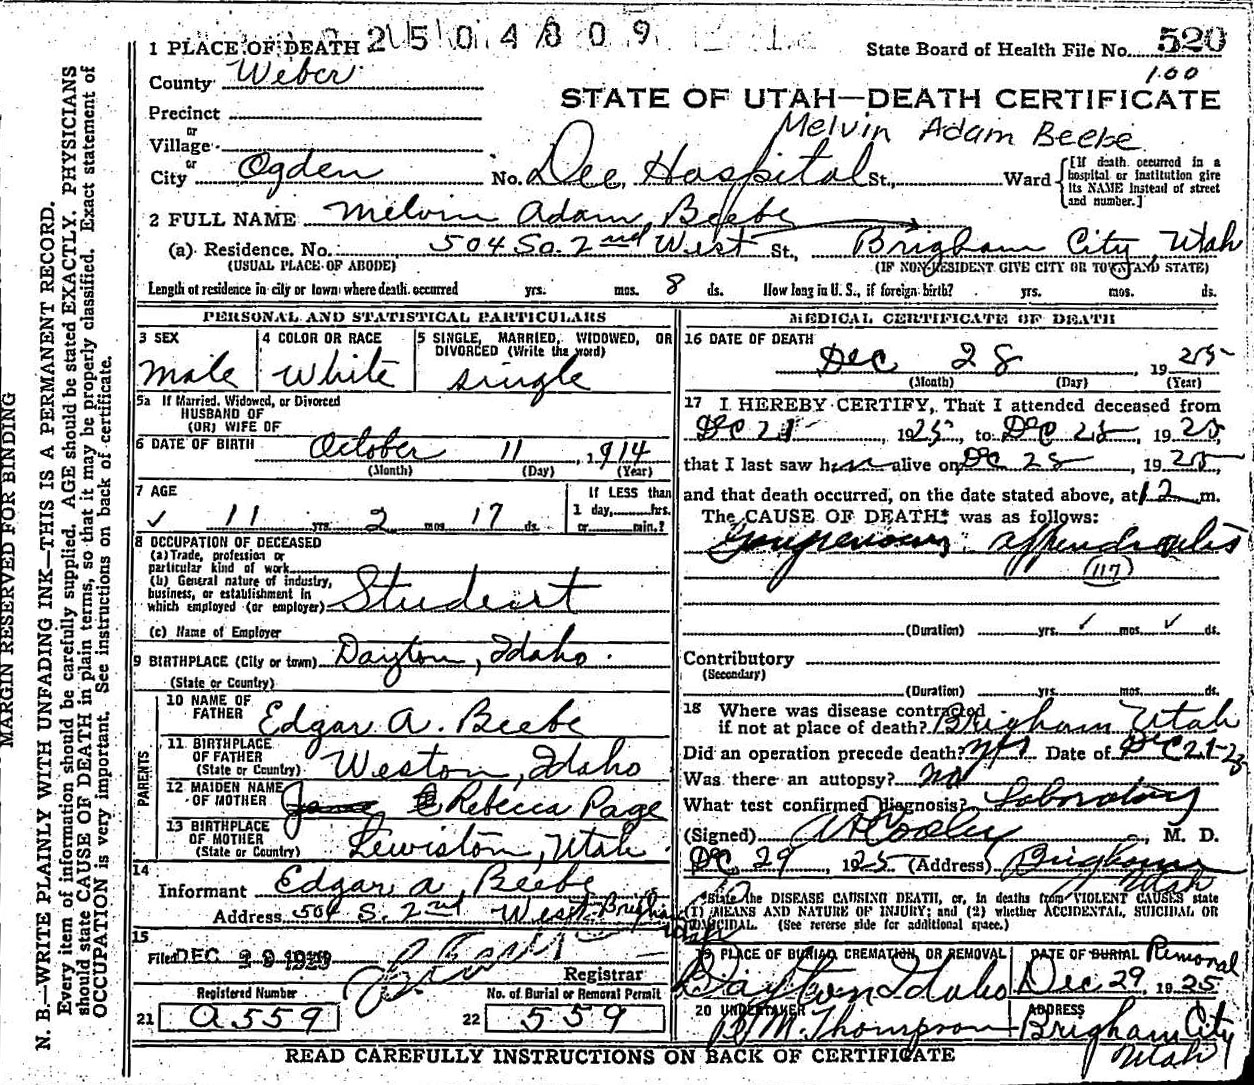 2504809
1 PLACE OF DEATH
State Board of Health File No. 520
100
County Weber
STATE OF UTAH—DEATH CERTIFICATE
Precinct
Melvin Adam Beebe
or
Village
or
City Ogden No. Dee Hospital St., Ward [If death occurred in a hospital or institution give its NAME instead of street and number.]
2 FULL NAME Melvin Adam Beebe
(a) Residence. No. 504 So. 2nd West St., Brigham City, Utah
(USUAL PLACE OF ABODE) (IF NON-RESIDENT GIVE CITY OR TOWN AND STATE)
Length of residence in city or town where death occurred yrs. mos. 8 ds. How long in U. S., if foreign birth? yrs. mos. ds.
PERSONAL AND STATISTICAL PARTICULARS
3 SEX
Male
4 COLOR OR RACE
White
5 SINGLE, MARRIED, WIDOWED, OR DIVORCED (Write the word)
Single
5a If Married, Widowed, or Divorced
HUSBAND OF
(OR) WIFE OF
6 DATE OF BIRTH October 11, 1914
(Month) (Day) (Year)
7 AGE
✓ 11 yrs. 2 mos. 17 ds.
If LESS than
1 day, hrs.
or min.?
8 OCCUPATION OF DECEASED
(a) Trade, profession or
particular kind of work
(b) General nature of industry,
business, or establishment in
which employed (or employer) Student
(c) Name of Employer
9 BIRTHPLACE (City or town) Dayton, Idaho.
(State or Country)
PARENTS
10 NAME OF
FATHER Edgar A. Beebe
11 BIRTHPLACE
OF FATHER
(State or Country) Weston, Idaho
12 MAIDEN NAME
OF MOTHER Rebecca Page
13 BIRTHPLACE
OF MOTHER
(State or Country) Lewiston, Utah.
14
Informant Edgar A. Beebe
Address 504 S. 2nd West Brigham
Utah
15
Filed DEC 29 1925
Registrar
Registered Number
21 a559
No. of Burial or Removal Permit
22 559
MEDICAL CERTIFICATE OF DEATH
16 DATE OF DEATH
Dec 28 1925
(Month) (Day) (Year)
17 I HEREBY CERTIFY, That I attended deceased from
Dec 21, 1925, to Dec 28, 1925,
that I last saw him alive on Dec 28, 1925,
and that death occurred, on the date stated above, at 12 m.
The CAUSE OF DEATH* was as follows:
Gangrenous appendicitis
(117)
(Duration) yrs. ✓ mos. ✓ ds.
Contributory
(Secondary)
(Duration) yrs. mos. ds.
18 Where was disease contracted
if not at place of death? Brigham Utah
Did an operation precede death? yes Date of Dec 21-25
Was there an autopsy? no
What test confirmed diagnosis? Laboratory
(Signed) A D Cooley, M. D.
Dec 29 1925 (Address) Brigham
Utah
*State the DISEASE CAUSING DEATH, or, in deaths from VIOLENT CAUSES state
(1) MEANS AND NATURE OF INJURY; and (2) whether ACCIDENTAL, SUICIDAL OR
HOMICIDAL. (See reverse side for additional space.)
19 PLACE OF BURIAL, CREMATION, OR REMOVAL
Dayton Idaho
DATE OF BURIAL Removal
Dec 29, 1925
20 UNDERTAKER
M. Thompson
ADDRESS
Brigham City
Utah
READ CAREFULLY INSTRUCTIONS ON BACK OF CERTIFICATE
MARGIN RESERVED FOR BINDING
N. B.—WRITE PLAINLY WITH UNFADING INK—THIS IS A PERMANENT RECORD.
Every item of information should be carefully supplied. AGE should be stated EXACTLY. PHYSICIANS
should state CAUSE OF DEATH in plain terms, so that it may be properly classified. Exact statement of
OCCUPATION is very important. See instructions on back of certificate.